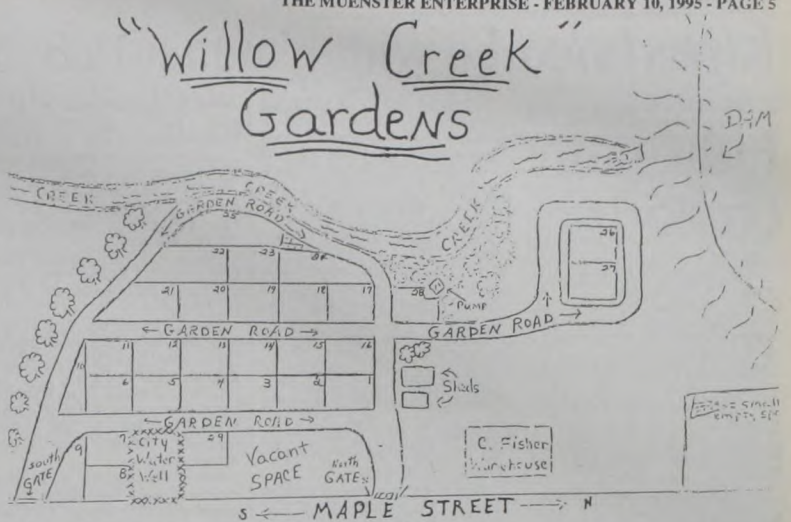 THE MUENSTER ENTERPRISE - FEBRUARY 10, 1995 - PAGE 5
"Willow Creek"
Gardens
DAM
CREEK
CREEK
CREEK
GARDEN ROAD
25
22 23 24
26
27
21 20 19 18 17
28
PUMP
GARDEN ROAD
GARDEN ROAD
11 12 13 14 15 16
10
6 5 4 3 2 1
Sheds
GARDEN ROAD
9 7 City 29
Water
8 Well
Vacant
SPACE
South
GATE
North
GATE
C. Fisher
Warehouse
small
empty
S MAPLE STREET N